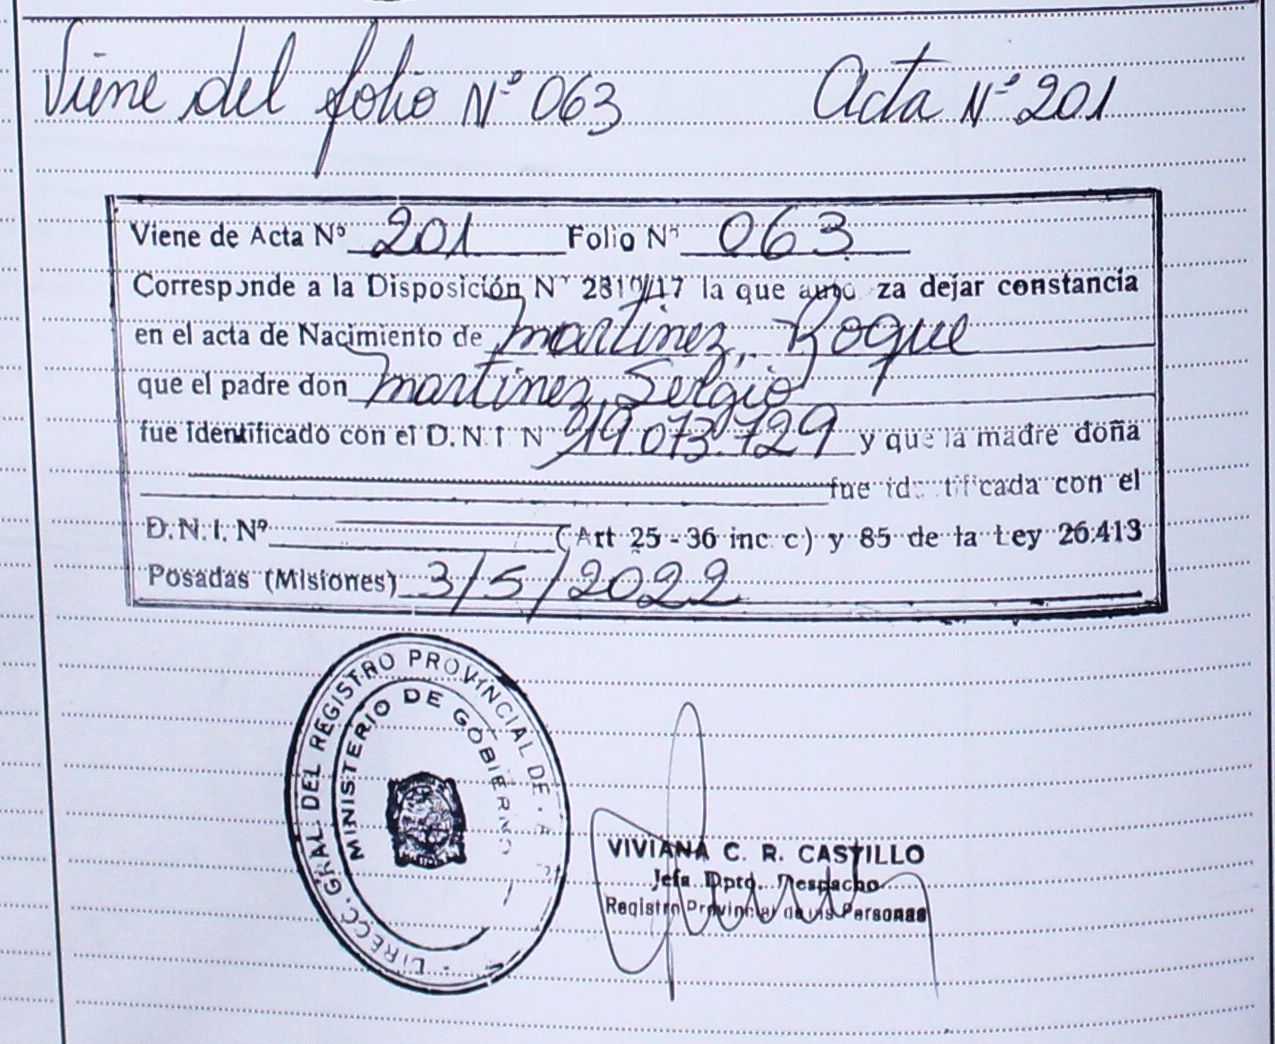 Viene del folio Nº 063 Acta Nº 201
Viene de Acta Nº 201 Folio Nº 063
Corresponde a la Disposición Nº 2810/17 la que za dejar constancia
en el acta de Nacimiento de Martinez, Roque
que el padre don Martinez, Sergio
fue identificado con el D.N.I Nº 19.073.729 y que la madre doña
fue identificada con el
D.N.I. Nº (Art 25-36 inc c) y 85 de la Ley 26.413
Posadas (Misiones) 3/5/2022
DIRECC. GRAL. DEL REGISTRO PROVINCIAL DE
MINISTERIO DE GOBIERNO
VIVIANA C. R. CASTILLO
Jefa Dpto. Despacho
Registro Provincial de las Personas